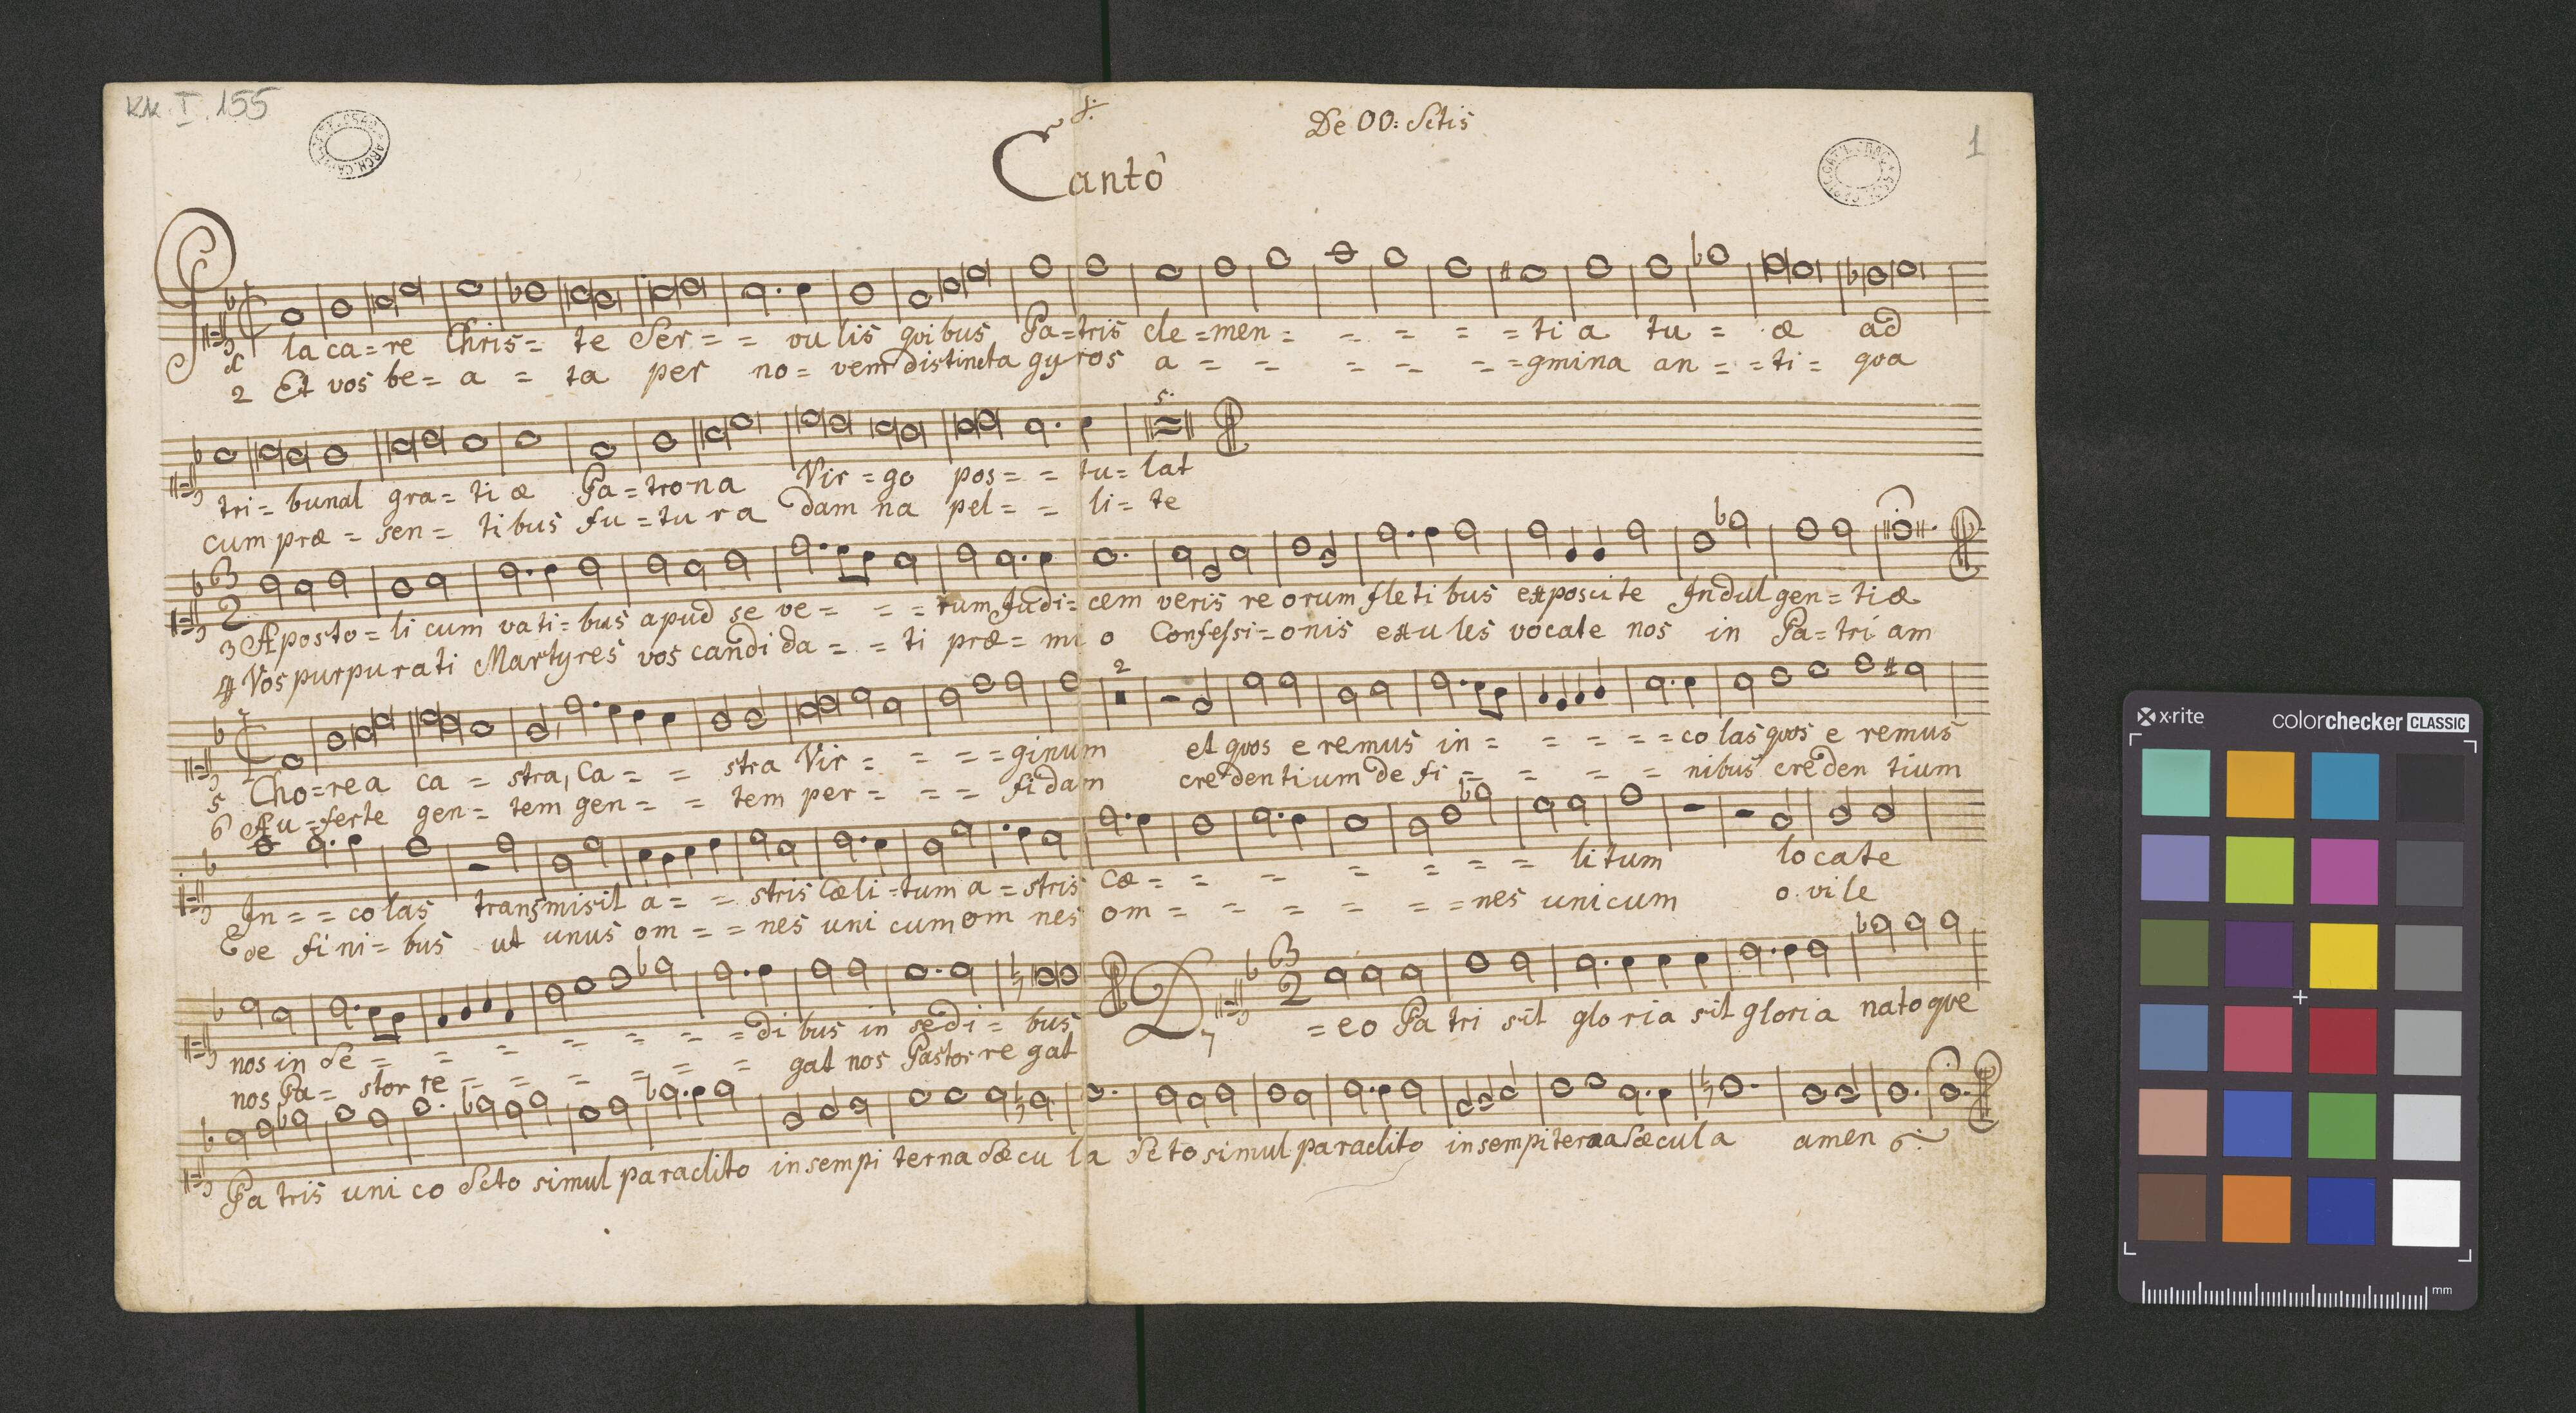 KK. I. 155
De OO: Sctis
1
Canto
Placa=re Chris= te Ser= = vulis qvibus Pa=tris cle=men= = = = =ti a tu = æ ad
2 Et vos be= a = ta per no= vem distincta gyros a = = = = = =gmina an = =ti = qva
5.
tri= bunal gra= ti æ Pa=trona Vir=go pos= = tu= lat
cum præ = sen= tibus fu=tura damna pel= = li= te
3 Aposto=li cum vati=bus apud se ve= = =rum Judi=cem veris reorum fletibus exposcite Indulgen=tiæ
4 Vos purpurati Martyres vos candida= = ti præ= mi o Confessi=onis exules vocate nos in Pa=triam
2
5 Cho=rea ca = stra, Ca= = stra Vir= = = =ginum et qvos eremus in= = = = =colas qvos e remus
6 Au=ferte gen= tem gen= = tem per= = = fidam credentium de fi= = = = nibus creden tium
In= = colas transmisit a= = stris Cæli=tum a=stris cæ= = = = = = = litum locate
de fini= bus ut unus om= =nes uni cum om nes om= = = = = =nes unicum ovile
nos in se= = = = = = =dibus in sedi= bus
7 Deo Patri sit gloria sit gloria natoqve
nos Pa= stor re= = = = = = gat nos Pastor re gat
Patris unico Scto simul paraclito in sempi terna sæcu la Scto simul paraclito in sempiterna sæcula amen
x·rite
colorchecker CLASSIC
mm